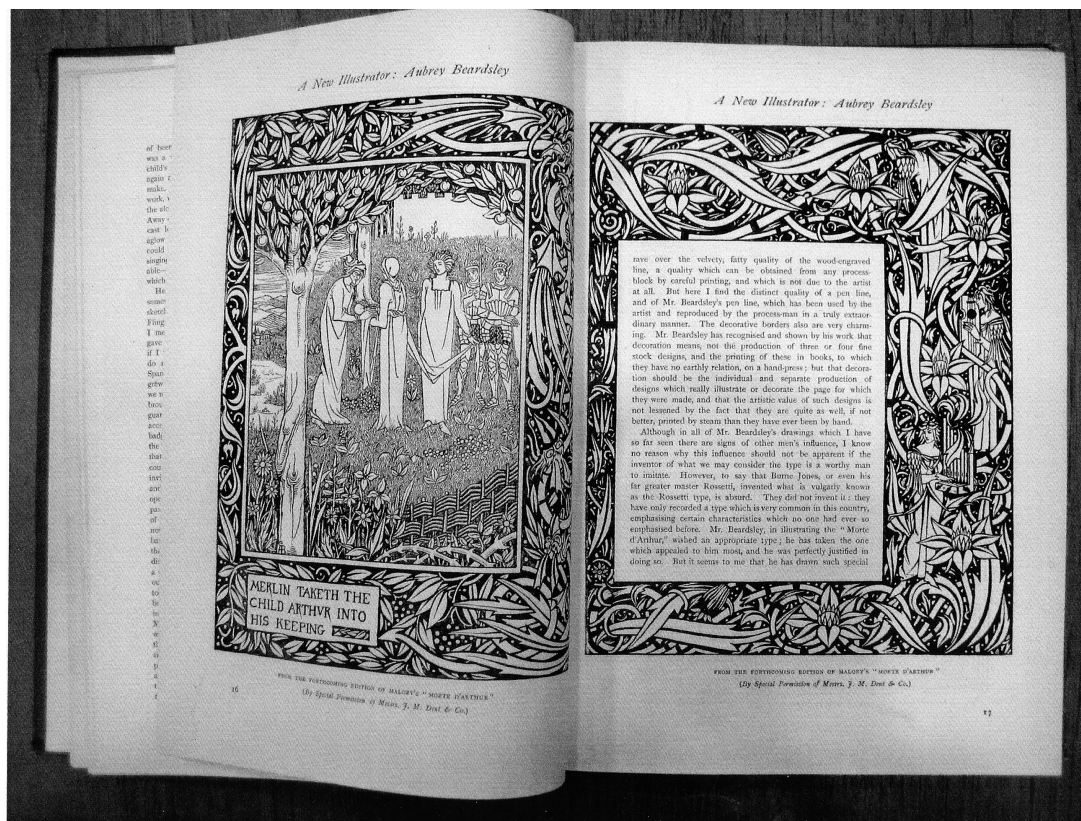 of been
was a
child's
again
make.
work,
the
Away
cast
aglow
could
singing
able—
which
He
some
sketch
Fling
I me
gave
if I
do
Span
grew
we
brou
guar
acco
bad
the
that
cou
invi
and
ope
pas
of
A New Illustrator: Aubrey Beardsley
MERLIN TAKETH THE
CHILD ARTHVR INTO
HIS KEEPING
FROM THE FORTHCOMING EDITION OF MALORY'S "MORTE D'ARTHUR."
(By Special Permission of Messrs. J. M. Dent & Co.)
16
A New Illustrator: Aubrey Beardsley
rave over the velvety, fatty quality of the wood-engraved
line, a quality which can be obtained from any process-
block by careful printing, and which is not due to the artist
at all. But here I find the distinct quality of a pen line,
and of Mr. Beardsley's pen line, which has been used by the
artist and reproduced by the process-man in a truly extraor-
dinary manner. The decorative borders also are very charm-
ing. Mr. Beardsley has recognised and shown by his work that
decoration means, not the production of three or four fine
stock designs, and the printing of these in books, to which
they have no earthly relation, on a hand-press; but that decora-
tion should be the individual and separate production of
designs which really illustrate or decorate the page for which
they were made, and that the artistic value of such designs is
not lessened by the fact that they are quite as well, if not
better, printed by steam than they have ever been by hand.
Although in all of Mr. Beardsley's drawings which I have
so far seen there are signs of other men's influence, I know
no reason why this influence should not be apparent if the
inventor of what we may consider the type is a worthy man
to imitate. However, to say that Burne Jones, or even his
far greater master Rossetti, invented what is vulgarly known
as the Rossetti type, is absurd. They did not invent it: they
have only recorded a type which is very common in this country,
emphasising certain characteristics which no one had ever so
emphasised before. Mr. Beardsley, in illustrating the "Morte
d'Arthur," wished an appropriate type; he has taken the one
which appealed to him most, and he was perfectly justified in
doing so. But it seems to me that he has drawn such special
FROM THE FORTHCOMING EDITION OF MALORY'S "MORTE D'ARTHUR."
(By Special Permission of Messrs. J. M. Dent & Co.)
17